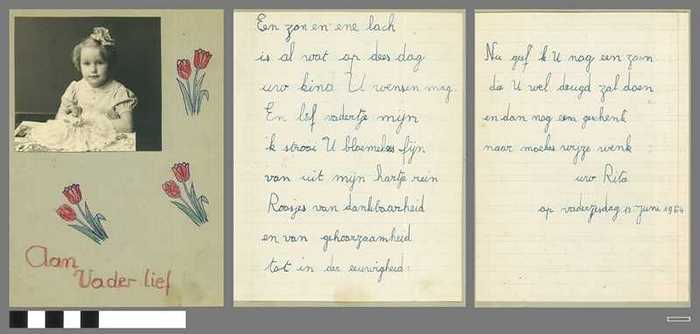 Aan
Vader lief
Een zon en ene lach
is al wat op dees dag
uw kind U wensen mag.
En lief vadertje mijn
ik strooi U bloemekes fijn
van uit mijn hartje rein
Roosjes van dankbaarheid
en van gehoorzaamheid
tot in der eeuwigheid.
Nu geef ik U nog een zoen
da U wel deugd zal doen
en dan nog een geschenk
naar moekes wijze wenk
uw Rita
op vaderjesdag juni 1954